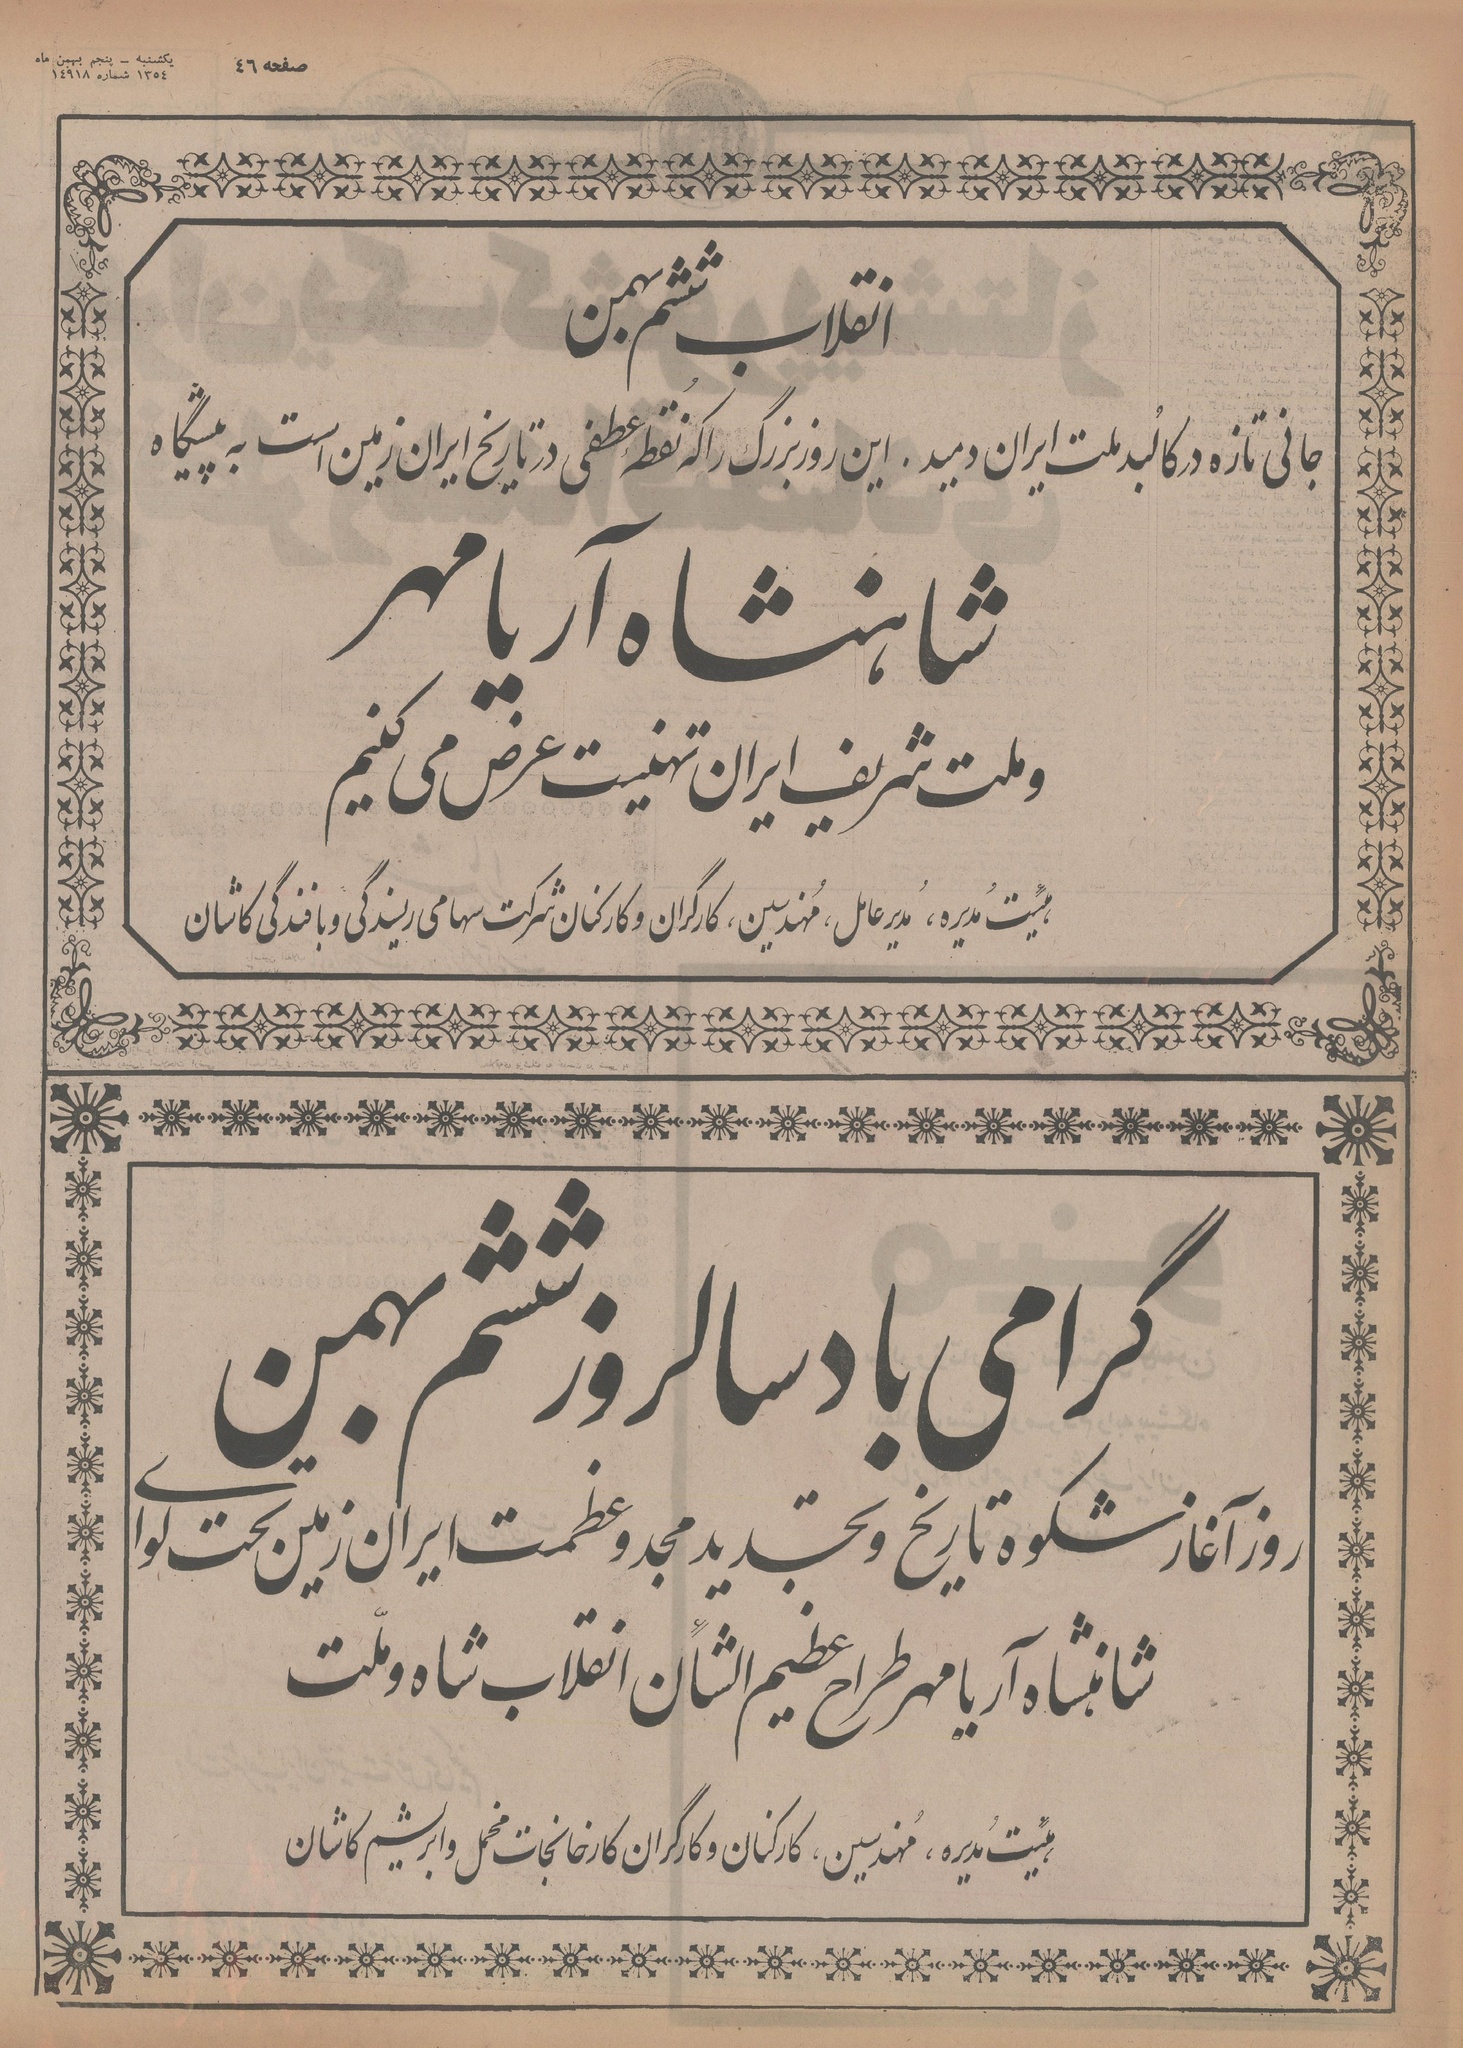 صفحه ٤٦
یکشنبه ــ پنجم بهمن ماه
۱۳٥٤ شماره ۱٤۹۱۸
انقلاب ششم بهمن
جانی تازه در کالبد ملت ایران دمید . این روز بزرگ را که نُقطهٔ عطفی در تاریخ ایران زمین است به پیشگاه
شاهنشاه آریامهر
و ملت شریف ایران تهنیت عرض می کنیم
هیئت مُدیره، مُدیر عامل، مُهندسین، کارگران و کارکنان شرکت سهامی ریسندگی و بافندگی کاشان
گرامی باد سالروز ششم بهمن
روز آغاز شکوه تاریخ و تجدید مجد و عظمت ایران زمین تحت لوای
شاهنشاه آریامهر طراح عظیم الشأن انقلاب شاه و ملّت
هیئت مُدیره ، مُهندسین، کارکنان و کارگران کارخانجات مخمل و ابریشم کاشان